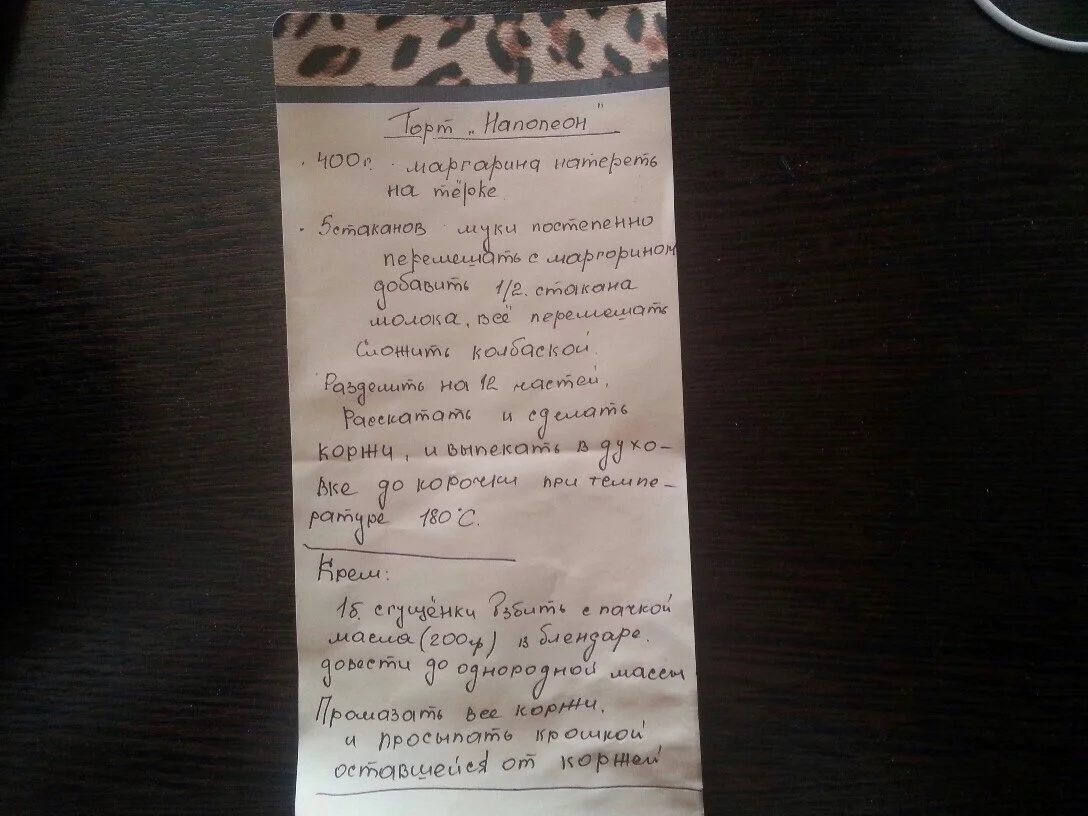 Торт „Наполеон"
· 400г. маргарина натереть
на тёрке.
· 5стаканов муки постепенно
перемешать с маргорином
добавить 1/2. стакана
молока, всё перемешать
Сложить колбаской.
Разделить на 12 частей,
Расскатать и сделать
коржи, и выпекать в духо-
вке до корочки при темпе-
ратуре 180°С.
Крем:
1б. сгущёнки Взбить с пачкой
масла (200гр) в блендаре.
довести до однородной массы
Промазать все коржи.
и просыпать крошкой
оставшейся от коржей